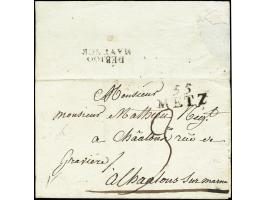 DEBIOO
MAYENCE
55
METZ
Monsieur
monsieur Mathieu
à Châalons rue de
gravière
a Chaalons sur marne